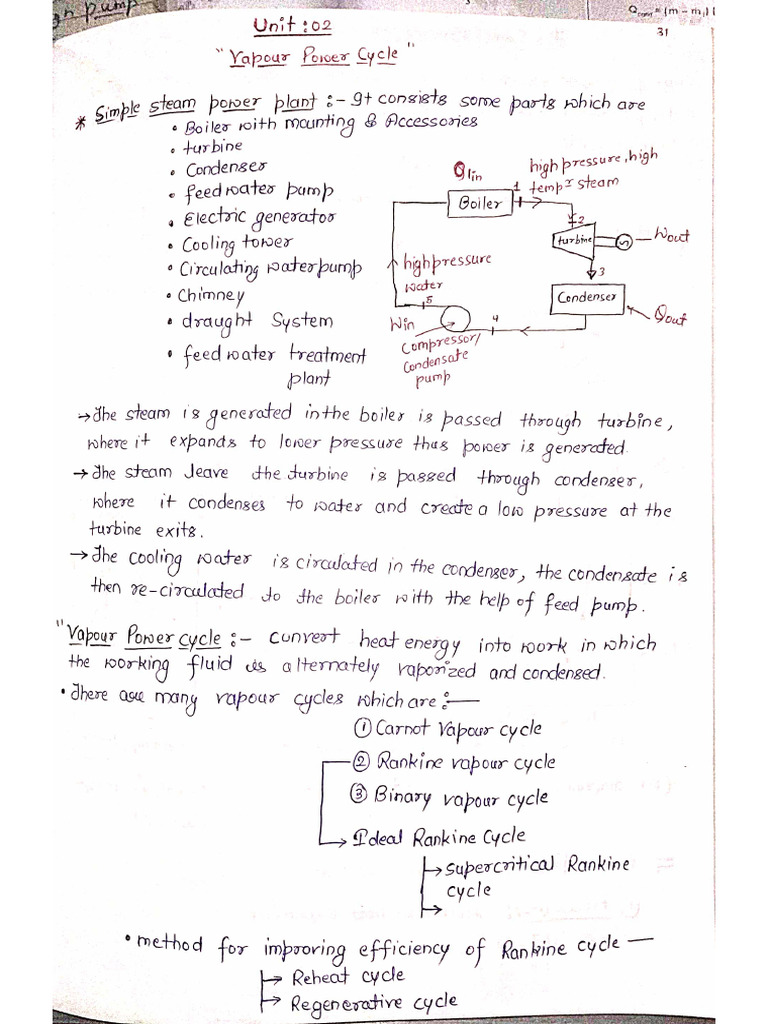 gh pump
Qconv = (m - m,) (
31
Unit : 02
"Vapour Power Cycle"
* Simple steam power plant :- It consists some parts which are
• Boiler with mounting & Accessories
• turbine
• Condenser
• feed water pump
• Electric generator
• Cooling tower
• Circulating water pump
• Chimney
• draught System
• feed water treatment
plant
Qin
high pressure, high
tempr steam
Boiler
1
2
turbine
Wout
3
Condenser
Qout
high pressure
water
5
4
Win
Compressor/
Condensate
pump
→ The steam is generated in the boiler is passed through turbine,
where it expands to lower pressure thus power is generated.
→ The steam leave the turbine is passed through condenser,
where it condenses to water and create a low pressure at the
turbine exits.
→ The cooling water is circulated in the condenser, the condensate is
then re-circulated to the boiler with the help of feed pump.
"Vapour Power cycle :- convert heat energy into work in which
the working fluid is alternately vaporized and condensed.
• There are many vapour cycles which are :—
① Carnot Vapour cycle
② Rankine vapour cycle
③ Binary vapour cycle
→ Ideal Rankine Cycle
→ Supercritical Rankine
cycle
→
• method for improving efficiency of Rankine cycle —
→ Reheat cycle
→ Regenerative cycle